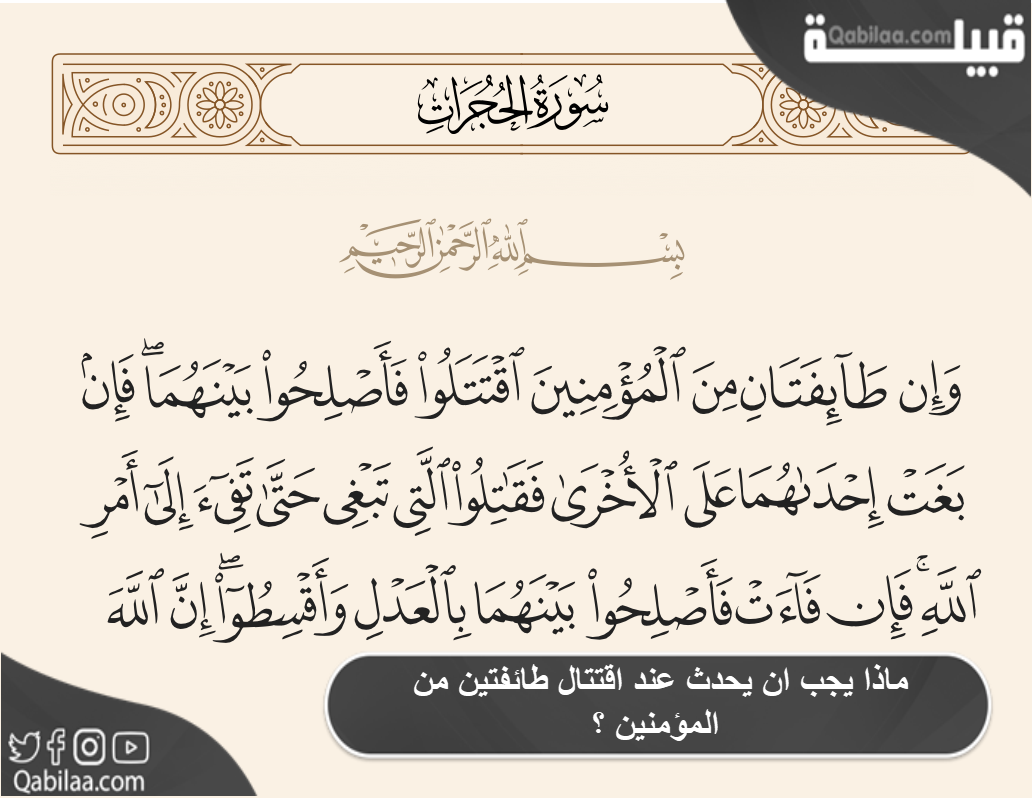 قبيلة
Qabilaa.com
سُورَةُ الحُجُرَاتِ
بِسْمِ ٱللَّهِ ٱلرَّحْمَٰنِ ٱلرَّحِيمِ
وَإِن طَآئِفَتَانِ مِنَ ٱلْمُؤْمِنِينَ ٱقْتَتَلُوا۟ فَأَصْلِحُوا۟ بَيْنَهُمَا ۖ فَإِنۢ
بَغَتْ إِحْدَىٰهُمَا عَلَى ٱلْأُخْرَىٰ فَقَٰتِلُوا۟ ٱلَّتِى تَبْغِى حَتَّىٰ تَفِىٓءَ إِلَىٰٓ أَمْرِ
ٱللَّهِ ۚ فَإِن فَآءَتْ فَأَصْلِحُوا۟ بَيْنَهُمَا بِٱلْعَدْلِ وَأَقْسِطُوٓا۟ ۖ إِنَّ ٱللَّهَ
ماذا يجب ان يحدث عند اقتتال طائفتين من
المؤمنين ؟
Qabilaa.com